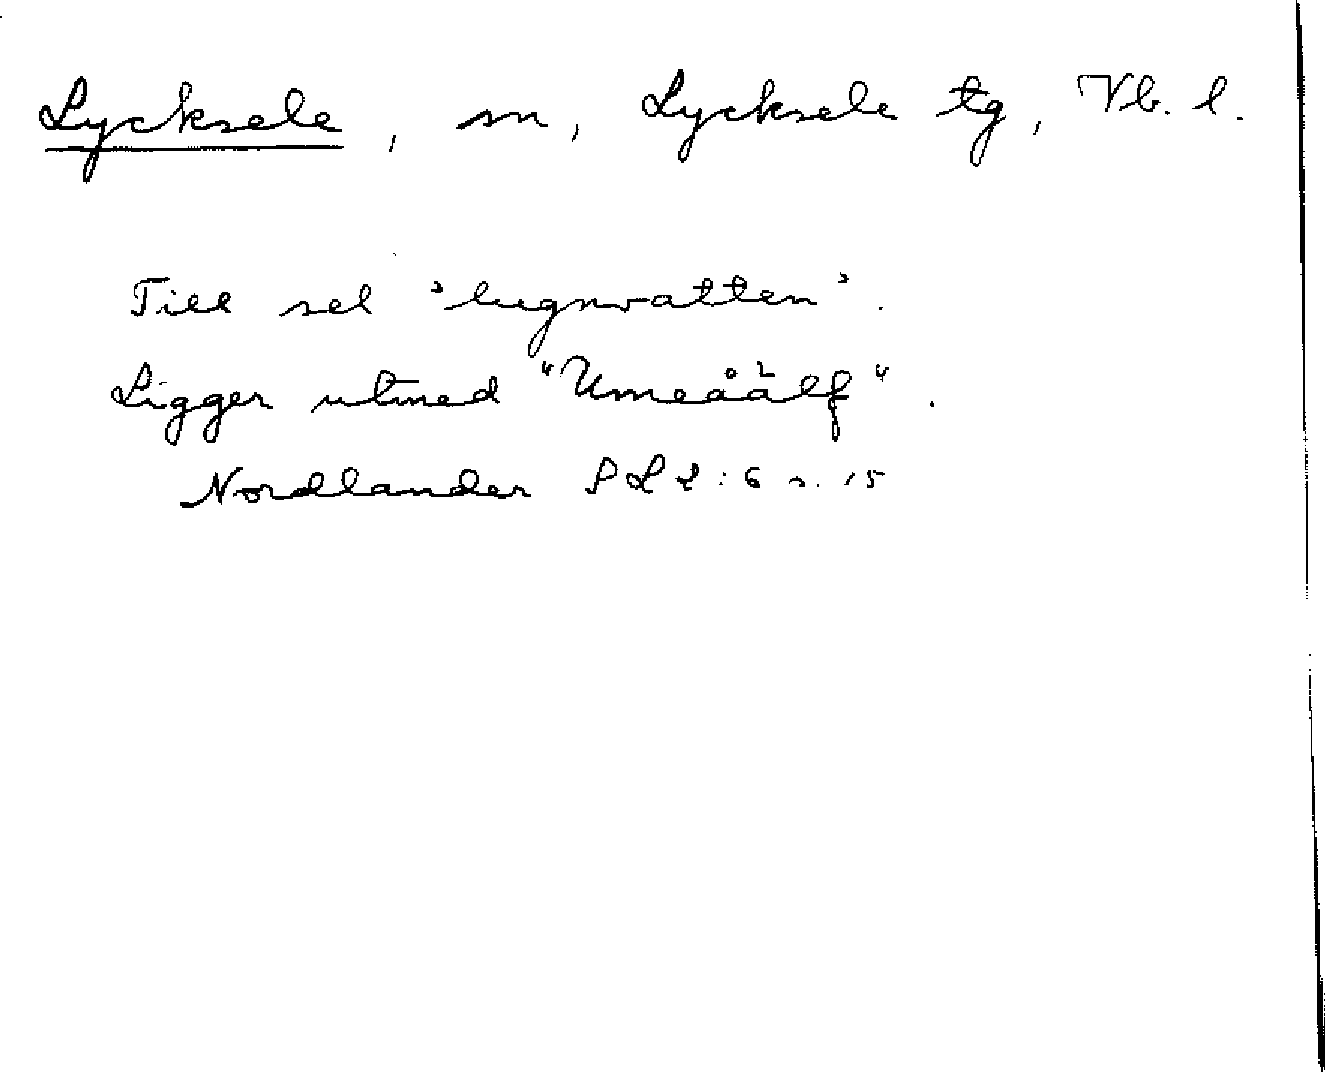 Lycksele, sn, Lycksele tg, Vb. l.
Till sel 'lugnvatten'.
Ligger utmed "Umeåälf".
Nordlander PL 2:6 s. 15